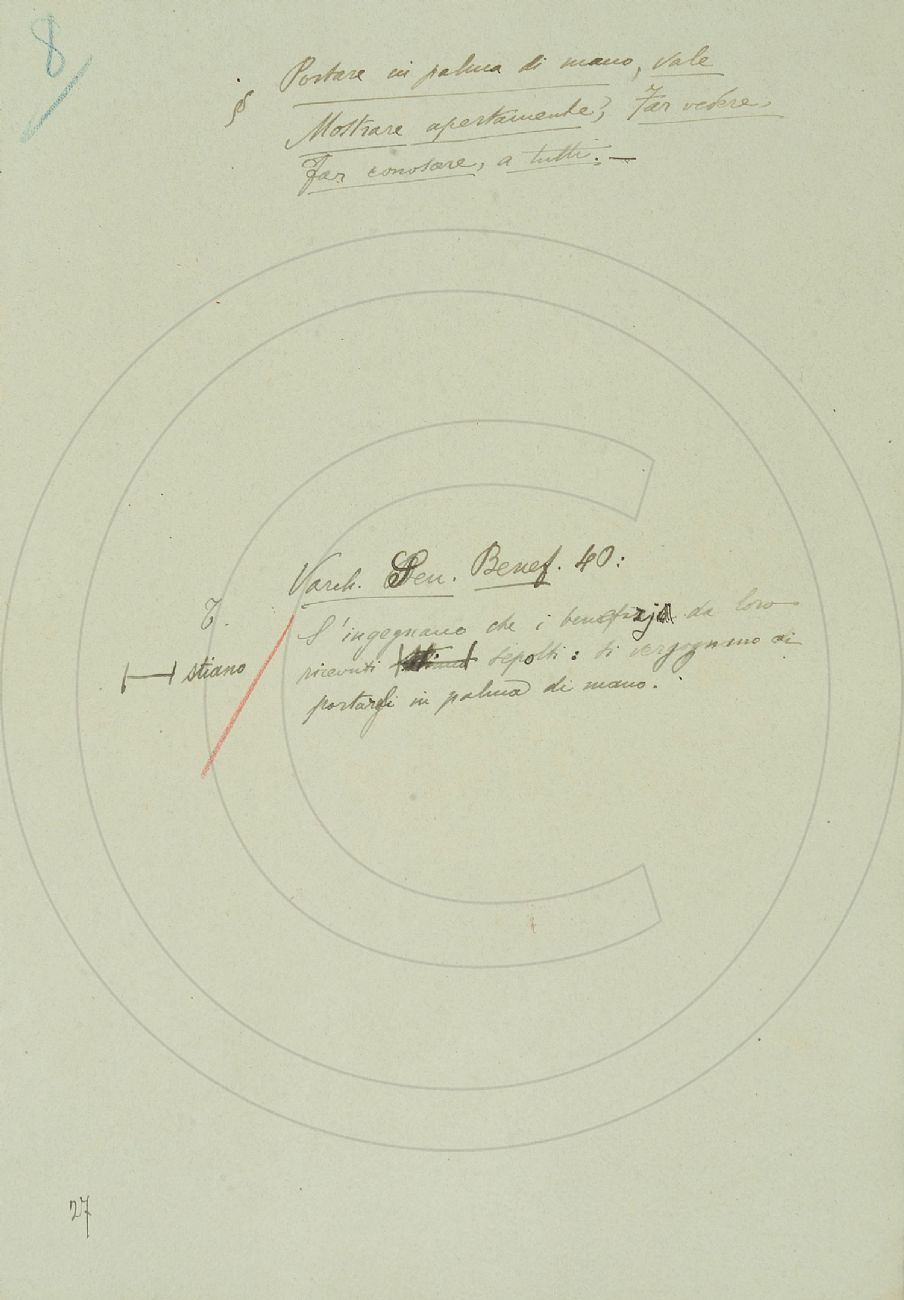 8
§ Portare in palma di mano, vale
Mostrare apertamente, Far vedere,
Far conoscere, a tutti. —
Varch. Sen. Benef. 40:
T. S'ingegnano che i benefizj da loro
stiano ricevuti sepolti: si vergognano di
portargli in palma di mano.
27